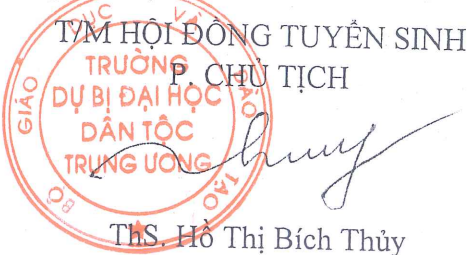 T/M HỘI ĐỒNG TUYỂN SINH
P. CHỦ TỊCH
BỘ GIÁO DỤC VÀ ĐÀO TẠO
TRƯỜNG
DỰ BỊ ĐẠI HỌC
DÂN TỘC
TRUNG ƯƠNG
ThS. Hồ Thị Bích Thủy